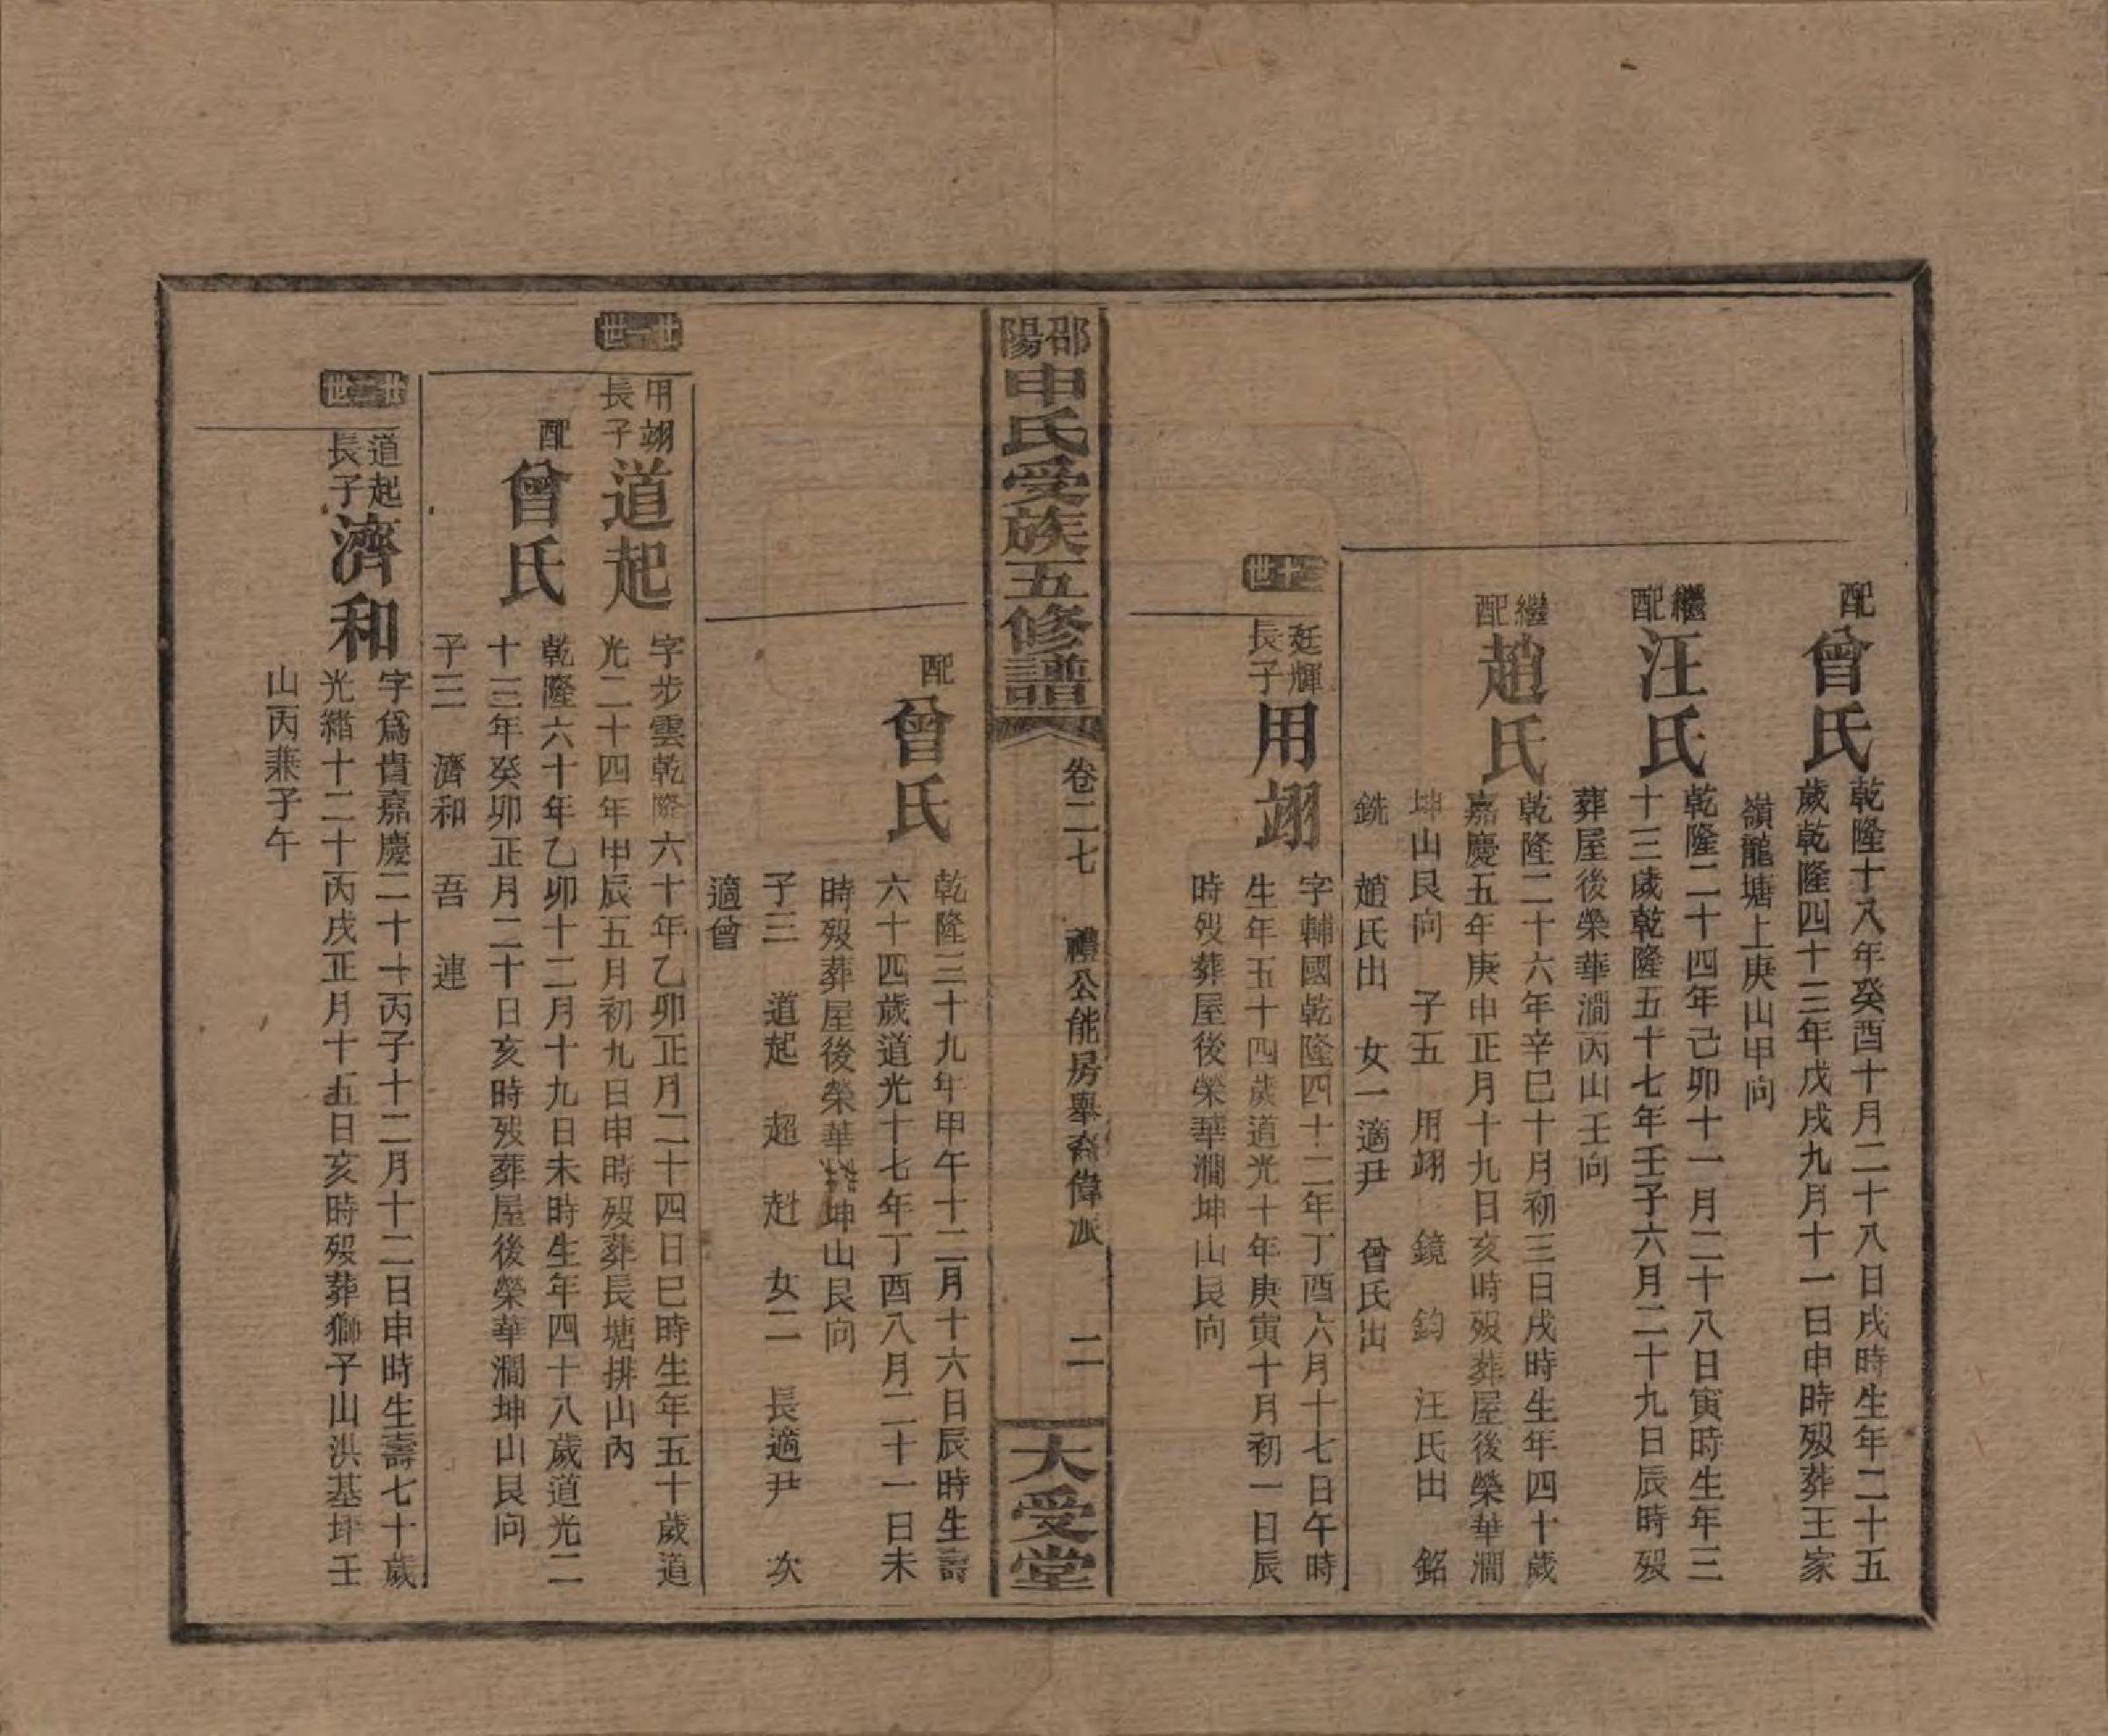 配
曾氏
乾隆十八年癸酉十月二十八日戌時生年二十五
歲乾隆四十三年戊戌九月十一日申時歿葬王家
嶺龍塘上庚山甲向
繼配
汪氏
乾隆二十四年己卯十一月二十八日寅時生年三
十三歲乾隆五十七年壬子六月二十九日辰時歿
葬屋後榮華澗丙山壬向
繼配
趙氏
乾隆二十六年辛巳十月初三日戌時生年四十歲
嘉慶五年庚申正月十九日亥時歿葬屋後榮華澗
坤山艮向 子五 用翊 鏡 鈞 汪氏出 銘
銑 趙氏出 女一適尹 曾氏出
二十世
廷輝
長子
用翊
字輔國乾隆四十二年丁酉六月十七日午時
生年五十四歲道光十年庚寅十月初一日辰
時歿葬屋後榮華澗坤山艮向
邵陽申氏受族五修譜
卷二七 禮公能房舉裔偉派 二
大受堂
配
曾氏
乾隆三十九年甲午十二月十六日辰時生壽
六十四歲道光十七年丁酉八月二十一日未
時歿葬屋後榮華坤山艮向
子三 道起 超 赳 女二 長適尹 次
適曾
廿一世
用翊
長子
道起
字步雲乾隆六十年乙卯正月二十四日巳時生年五十歲道
光二十四年甲辰五月初九日申時歿葬長塘排山內
配
曾氏
乾隆六十年乙卯十二月十九日未時生年四十八歲道光二
十三年癸卯正月二十日亥時歿葬屋後榮華澗坤山艮向
子三 濟和 吾 連
廿二世
道起
長子
濟和
字爲貴嘉慶二十一丙子十二月十二日申時生壽七十歲
光緒十二丙戌正月十五日亥時歿葬獅子山洪基坪壬
山丙兼子午